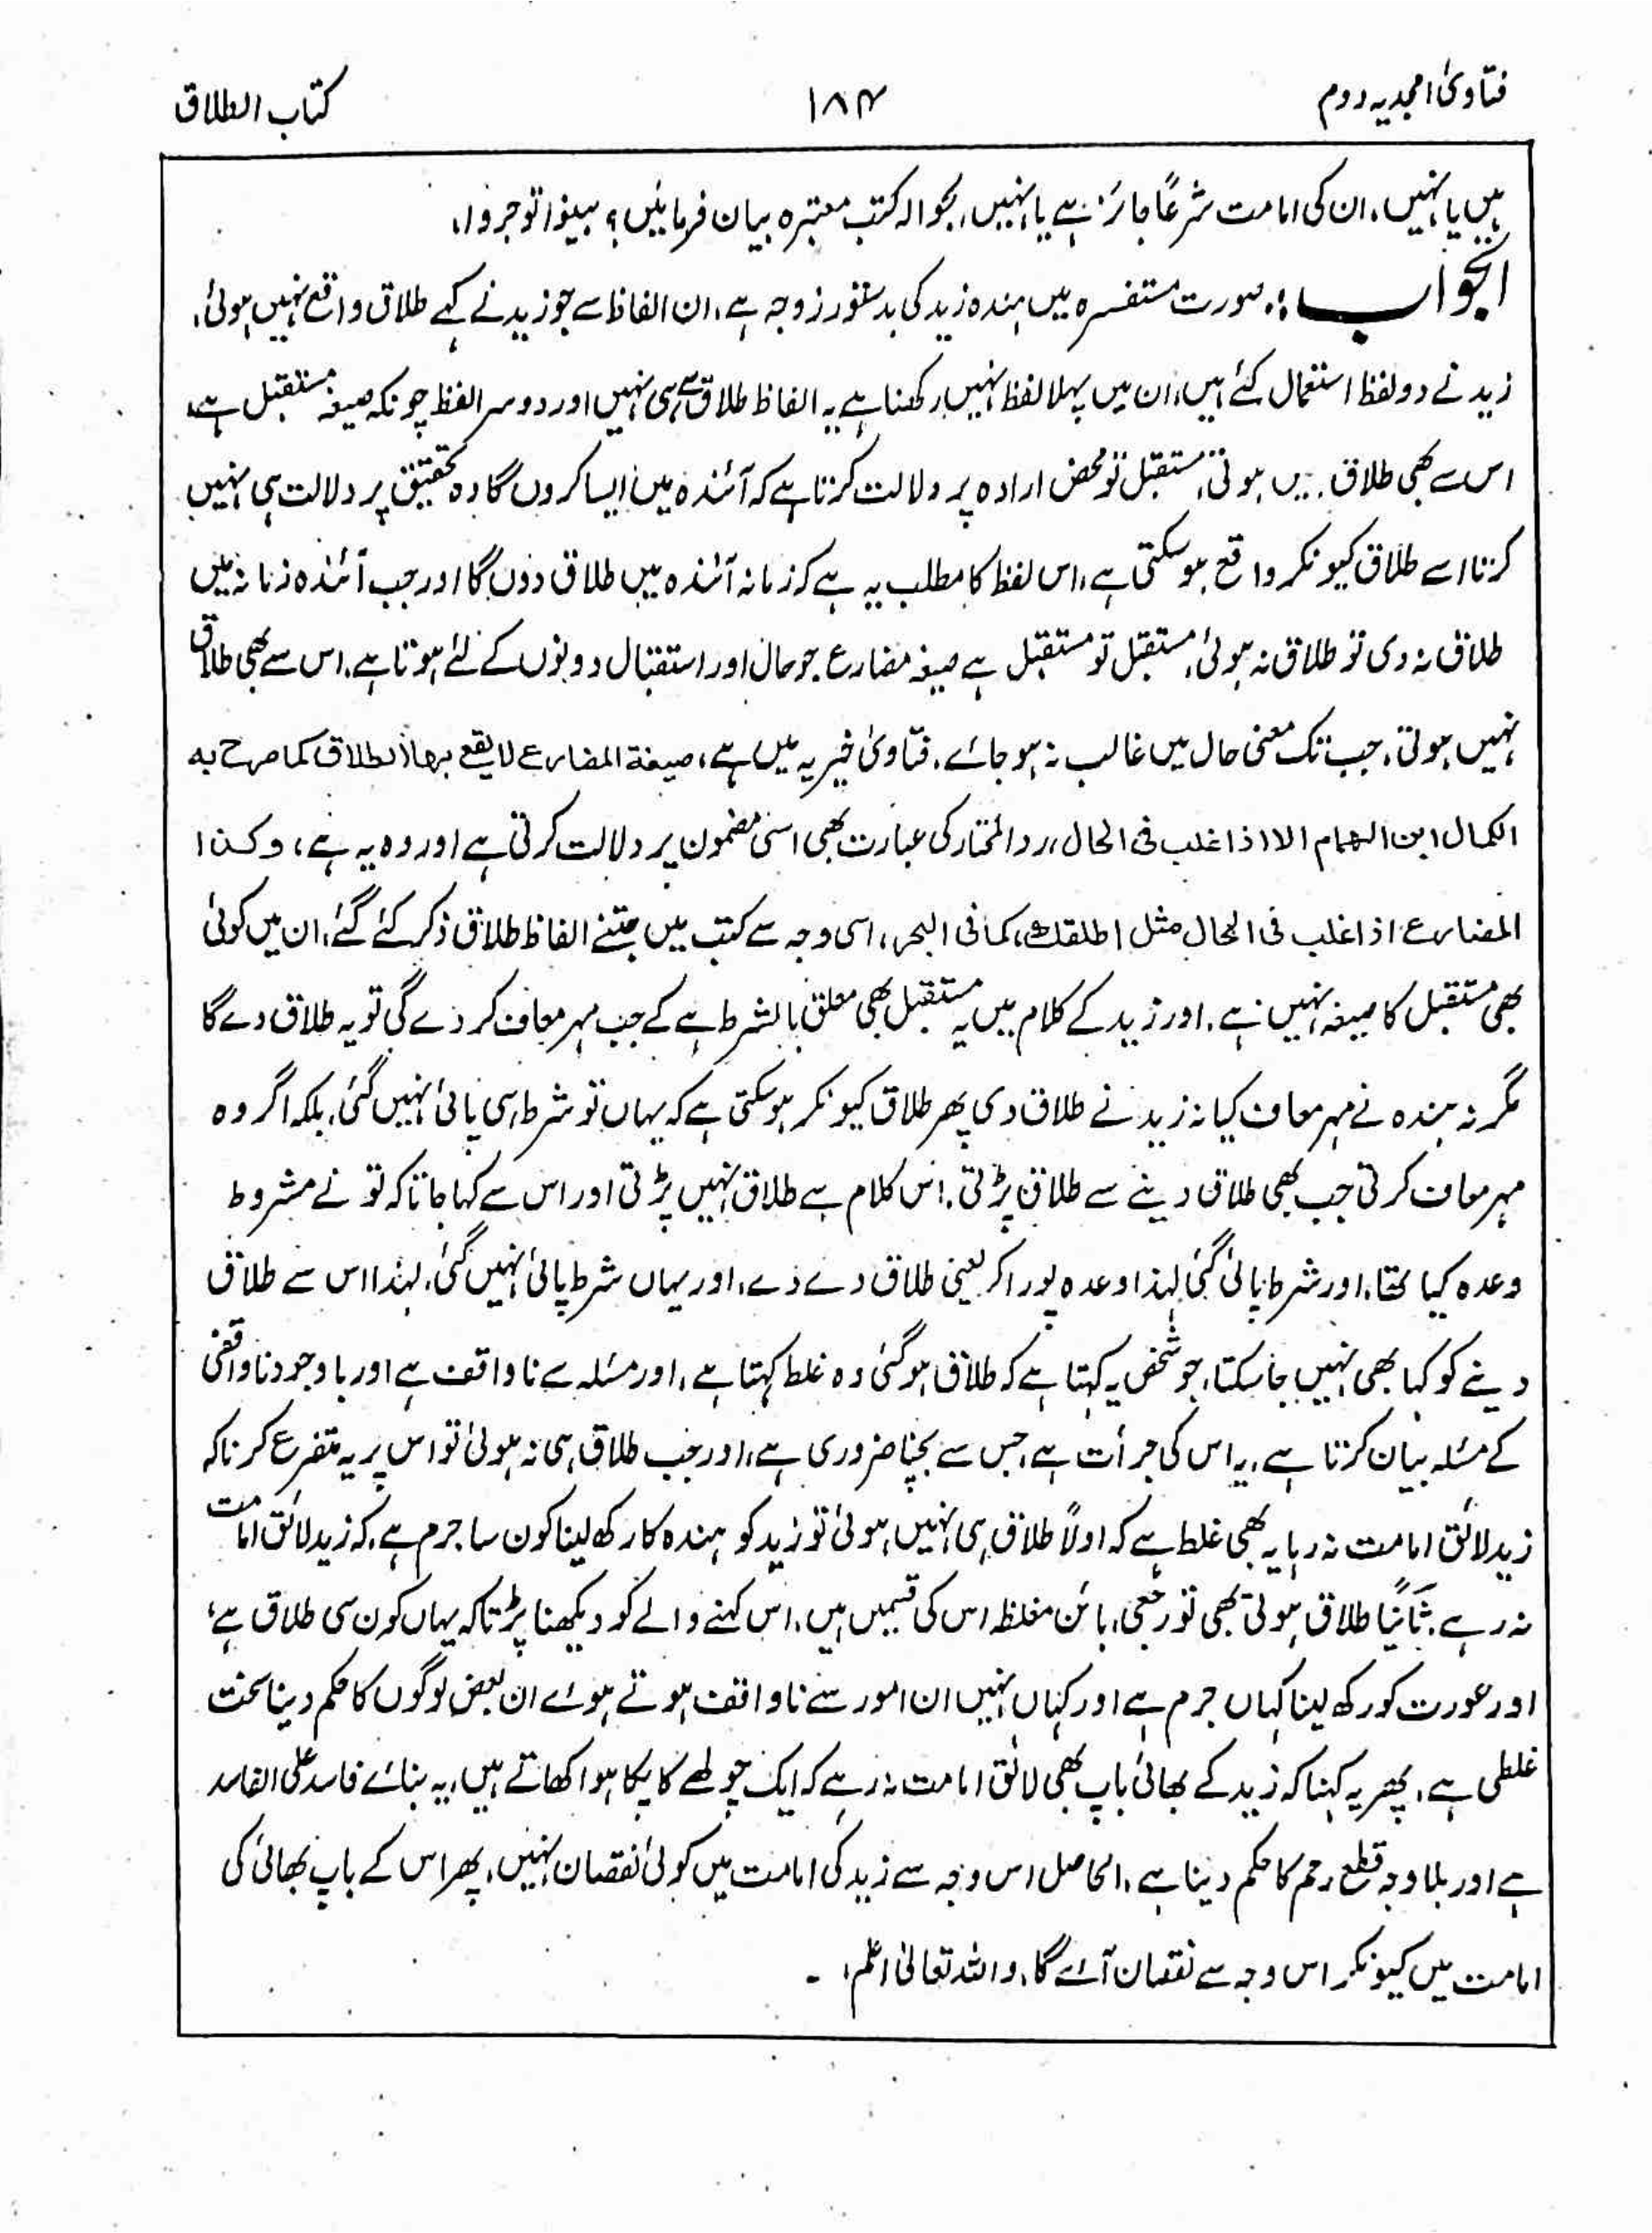 فتاویٰ امجدیہ دوم
۱۸۴
کتاب الطلاق
ہیں یا نہیں، ان کی امامت شرعاً جائز ہے یا نہیں، بحوالہ کتب معتبرہ بیان فرمائیں؟ بینوا توجروا،
الجواب :۔ صورت مستفسرہ میں ہندہ زید کی بدستور زوجہ ہے، ان الفاظ سے جو زید نے کہے طلاق واقع نہیں ہوئی،
زید نے دو لفظ استعمال کئے ہیں، ان میں پہلا لفظ نہیں رکھنا ہے یہ الفاظ طلاق سے ہی نہیں اور دوسرا لفظ چونکہ صیغہ مستقبل ہے،
اس سے بھی طلاق نہیں ہوتی، مستقبل تو محض ارادہ پر دلالت کرتا ہے کہ آئندہ میں ایسا کروں گا وہ تحقیق پر دلالت ہی نہیں
کرتا اسے طلاق کیونکر واقع ہوسکتی ہے، اس لفظ کا مطلب یہ ہے کہ زمانہ آئندہ میں طلاق دوں گا اور جب آئندہ زمانہ میں
طلاق نہ دی تو طلاق نہ ہوئی، مستقبل تو مستقبل ہے صیغہ مضارع جو حال اور استقبال دونوں کے لئے ہوتا ہے، اس سے بھی طلاق
نہیں ہوتی، جب تک معنی حال میں غالب نہ ہو جائے، فتاویٰ خیریہ میں ہے، صیغة المضارع لا یقع بھا الطلاق کما صرح بہ
الکمال ابن الھمام الا اذا غلب فی الحال، رد المحتار کی عبارت بھی اسی مضمون پر دلالت کرتی ہے اور وہ یہ ہے، وکذا
المضارع اذا غلب فی الحال مثل اطلقک، کما فی البحر، اسی وجہ سے کتب میں جتنے الفاظ طلاق ذکر کئے گئے، ان میں کوئی
بھی مستقبل کا صیغہ نہیں ہے، اور زید کے کلام میں یہ مستقبل بھی معلق بالشرط ہے کے جب مہر معاف کر دے گی تو یہ طلاق دے گا
مگر نہ ہندہ نے مہر معاف کیا نہ زید نے طلاق دی پھر طلاق کیونکر ہوسکتی ہے کہ یہاں تو شرط ہی پائی نہیں گئی، بلکہ اگر وہ
مہر معاف کرتی جب بھی طلاق دینے سے طلاق پڑتی، اس کلام سے طلاق نہیں پڑتی اور اس سے کہا جاتا کہ تو نے مشروط
وعدہ کیا تھا، اور شرط پائی گئی لہذا وعدہ پورا کر یعنی طلاق دے دے، اور یہاں شرط پائی نہیں گئی، لہٰذا اس سے طلاق
دینے کو کہا بھی نہیں جاسکتا، جو شخص یہ کہتا ہے کہ طلاق ہوگئی وہ غلط کہتا ہے، اور مسئلہ سے ناواقف ہے اور باوجود ناواقفی
کے مسئلہ بیان کرتا ہے، یہ اس کی جرأت ہے، جس سے بچنا ضروری ہے، اور جب طلاق ہی نہ ہوئی تو اس پر یہ متفرع کرنا کہ
زید لائق امامت نہ رہا یہ بھی غلط ہے کہ اولاً طلاق ہی نہیں ہوئی تو زید کو ہندہ کا رکھ لینا کون سا جرم ہے، کہ زید لائق امامت
نہ رہے، ثانیاً طلاق ہوتی بھی تو رجعی، بائن مغلظہ اس کی قسمیں ہیں، اس کہنے والے کو دیکھنا پڑتا کہ یہاں کون سی طلاق ہے،
اور عورت کو رکھ لینا کہاں جرم ہے اور کہاں نہیں ان امور سے ناواقف ہوتے ہوئے ان بعض لوگوں کا حکم دینا سخت
غلطی ہے، پھر یہ کہنا کہ زید کے بھائی باپ بھی لائق امامت نہ رہے کہ ایک چولھے کا پکا ہوا کھاتے ہیں، یہ بنائے فاسد علی الفاسد
ہے اور بلا وجہ قطع رحم کا حکم دینا ہے، الحاصل اس وجہ سے زید کی امامت میں کوئی نقصان نہیں، پھر اس کے باپ بھائی کی
امامت میں کیونکر اس وجہ سے نقصان آئے گا، واللہ تعالیٰ اعلم، ۔